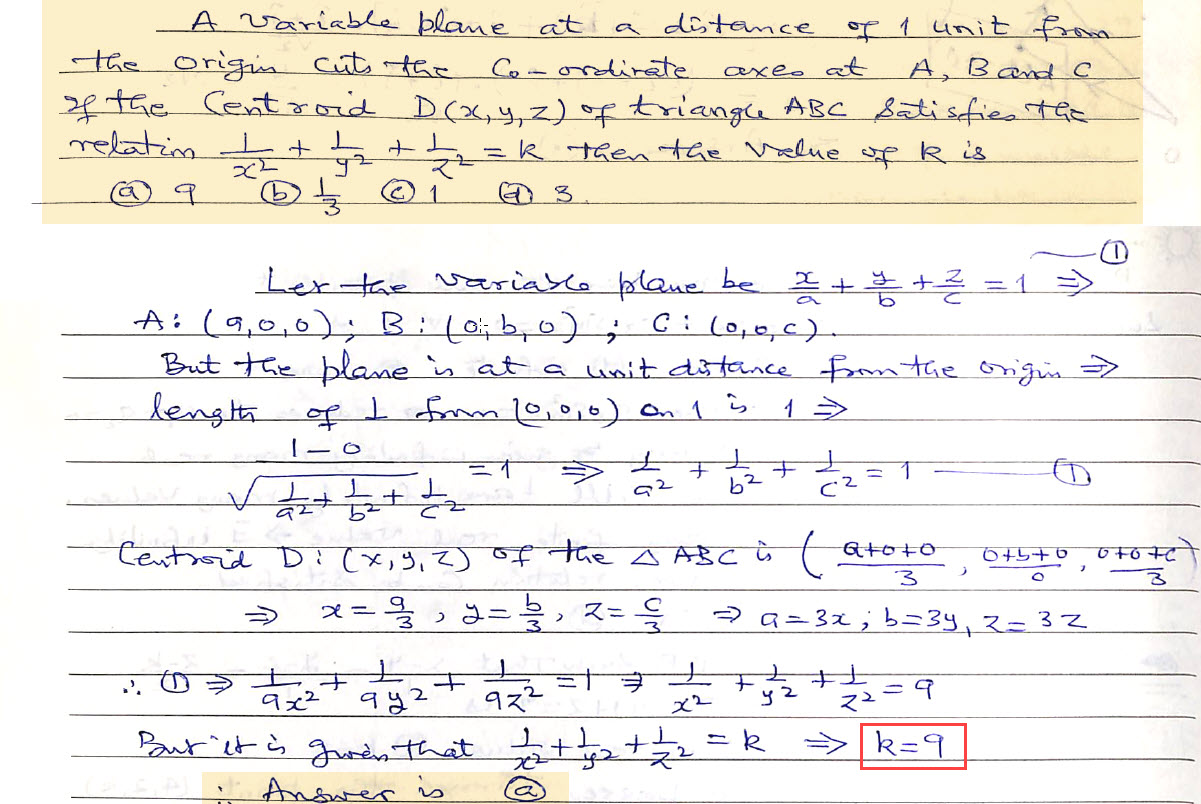 A variable plane at a distance of 1 unit from
the origin cuts the Co-ordinate axes at A, B and C
If the Centroid D(x,y,z) of triangle ABC satisfies the
relation 1/x² + 1/y² + 1/z² = k then the value of k is
(a) 9 (b) 1/3 (c) 1 (d) 3.
Let the variable plane be x/a + y/b + z/c = 1 —① ⇒
A: (a,0,0); B: (0,b,0); C: (0,0,c).
But the plane is at a unit distance from the origin ⇒
length of ⊥ from (0,0,0) on 1 is 1 ⇒
1-0/√(1/a² + 1/b² + 1/c²) = 1 ⇒ 1/a² + 1/b² + 1/c² = 1 —①
Centroid D: (x,y,z) of the △ ABC is (a+0+0/3, 0+b+0/0, 0+0+c/3)
⇒ x = a/3, y = b/3, z = c/3 ⇒ a=3x; b=3y, z=3z
∴ ① ⇒ 1/9x² + 1/9y² + 1/9z² = 1 ⇒ 1/x² + 1/y² + 1/z² = 9
But it is given that 1/x² + 1/y² + 1/z² = k ⇒ k=9
∴ Answer is (a)